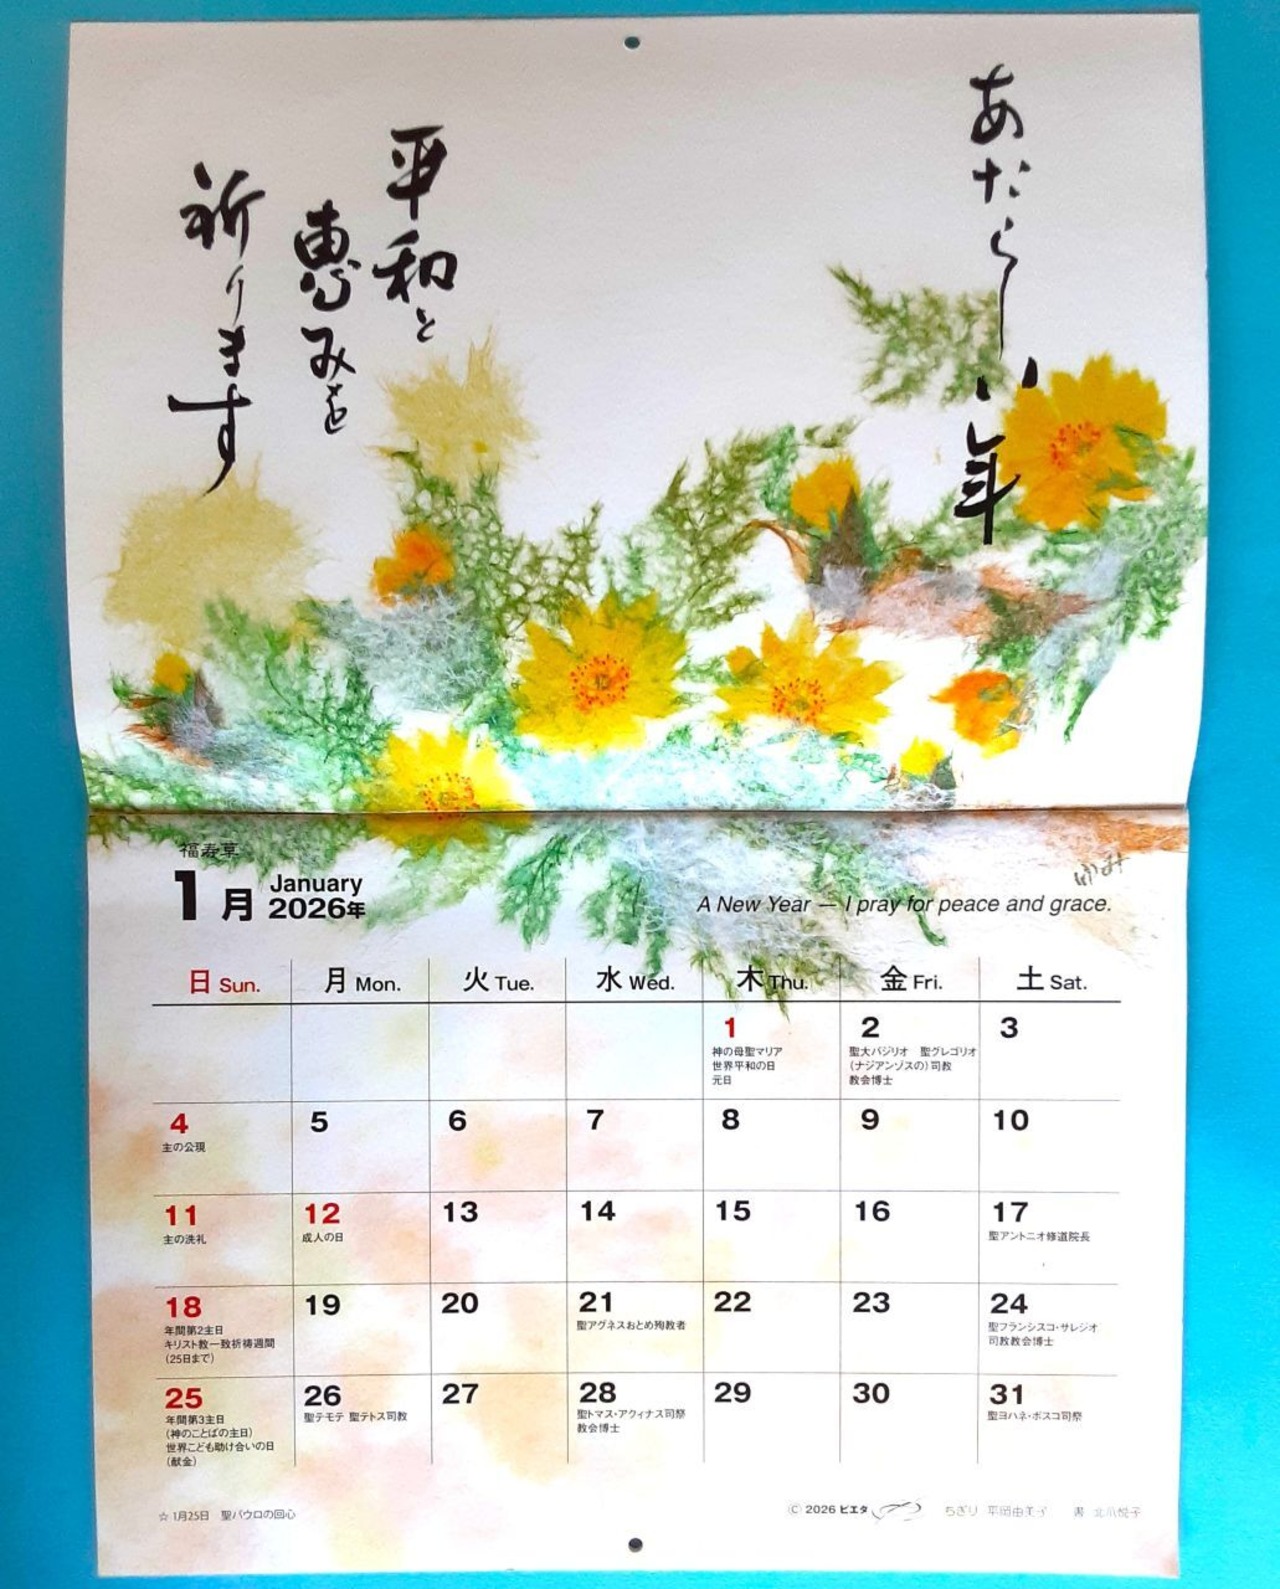 あたらしい年
平和と
恵みを
祈ります
福寿草
1月 January 2026年
A New Year — I pray for peace and grace.
ゆみ
日 Sun. 月 Mon. 火 Tue. 水 Wed. 木 Thu. 金 Fri. 土 Sat.
1 2 3
神の母聖マリア
世界平和の日
元日
聖大バジリオ 聖グレゴリオ
(ナジアンゾスの)司教
教会博士
4 5 6 7 8 9 10
主の公現
11 12 13 14 15 16 17
主の洗礼
成人の日
聖アントニオ修道院長
18 19 20 21 22 23 24
年間第2主日
キリスト教一致祈祷週間
(25日まで)
聖アグネスおとめ殉教者
聖フランシスコ・サレジオ
司教教会博士
25 26 27 28 29 30 31
年間第3主日
(神のことばの主日)
世界こども助け合いの日
(献金)
聖テモテ 聖テトス司教
聖トマス・アクィナス司祭
教会博士
聖ヨハネ・ボスコ司祭
☆ 1月25日 聖パウロの回心
© 2026 ピエタ ちぎり 平岡由美子 書 北爪悦子